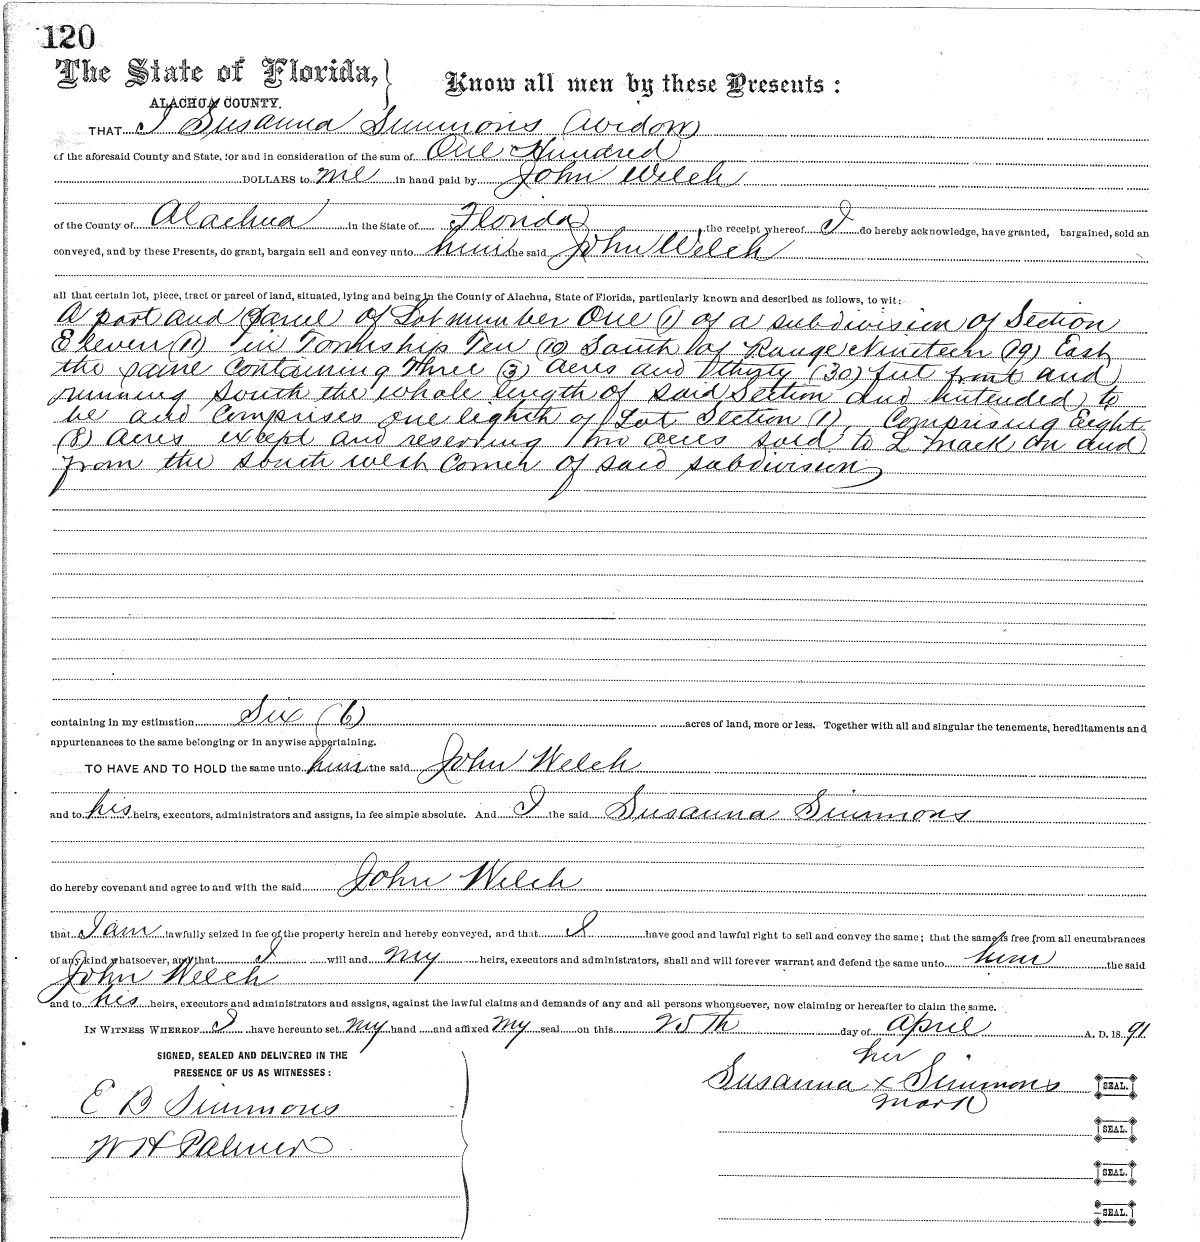 120
The State of Florida, } Know all men by these Presents :
ALACHUA COUNTY.
THAT I Susanna Simmons (widow)
of the aforesaid County and State, for and in consideration of the sum of One Hundred
DOLLARS to me in hand paid by John Welch
of the County of Alachua in the State of Florida the receipt whereof I do hereby acknowledge, have granted, bargained, sold an
conveyed, and by these Presents, do grant, bargain sell and convey unto him the said John Welch
all that certain lot, piece, tract or parcel of land, situated, lying and being in the County of Alachua, State of Florida, particularly known and described as follows, to wit:
A part and parcel of Lot number One (1) of a subdivision of Section
Eleven (11) in Township Ten (10) South of Range Nineteen (19) East
the same containing three (3) acres and thirty (30) feet front and
running south the whole length of said Section and intended to
be and comprises one eighth of Lot Section (1) Comprising Eight
(8) Acres except and reserving two acres sold to L Mack on and
from the south west corner of said subdivision
containing in my estimation Six (6) acres of land, more or less. Together with all and singular the tenements, hereditaments and
appurtenances to the same belonging or in anywise appertaining.
TO HAVE AND TO HOLD the same unto him the said John Welch
and to his heirs, executors, administrators and assigns, in fee simple absolute. And I the said Susanna Simmons
do hereby covenant and agree to and with the said John Welch
that I am lawfully seized in fee of the property herein and hereby conveyed, and that I have good and lawful right to sell and convey the same; that the same is free from all encumbrances
of any kind whatsoever, and that I will and my heirs, executors and administrators, shall and will forever warrant and defend the same unto him the said
John Welch
and to his heirs, executors and administrators and assigns, against the lawful claims and demands of any and all persons whomsoever, now claiming or hereafter to claim the same.
IN WITNESS WHEREOF I have hereunto set my hand and affixed my seal on this 25th day of April A. D. 1891
SIGNED, SEALED AND DELIVERED IN THE
PRESENCE OF US AS WITNESSES :
her
Susanna x Simmons SEAL.
mark
E B Simmons
SEAL.
W H Palmer
SEAL.
SEAL.